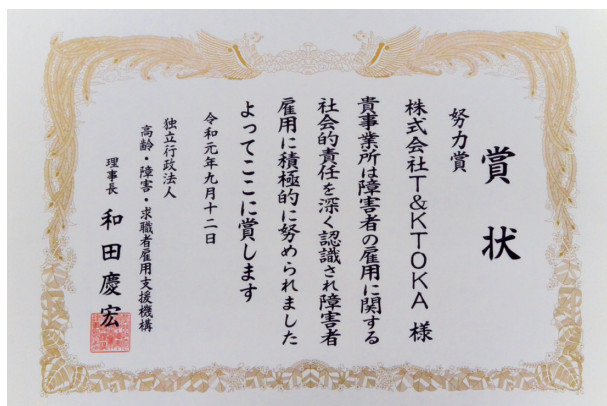 賞状
努力賞
株式会社T&KTOKA 様
貴事業所は障害者の雇用に関する
社会的責任を深く認識され障害者
雇用に積極的に努められました
よってここに賞します
令和元年九月十二日
独立行政法人
高齢・障害・求職者雇用支援機構
理事長 和田慶宏